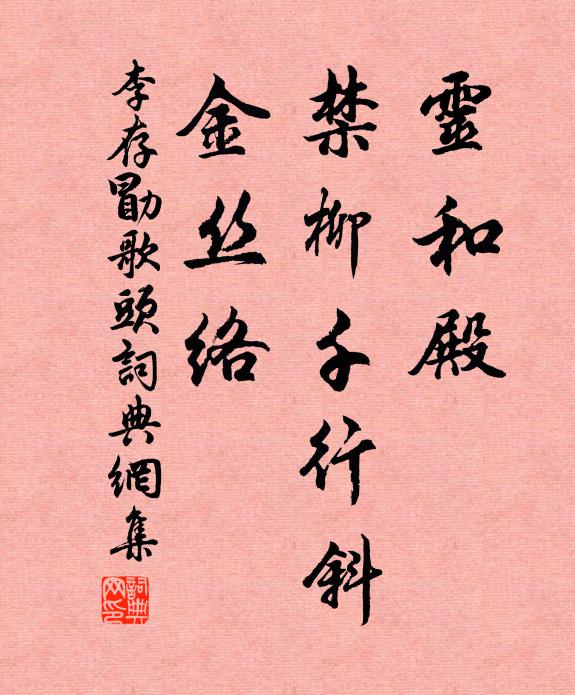 靈和殿
禁柳千行斜
金丝络
李存勖歌頭詞典網集
詞典网印